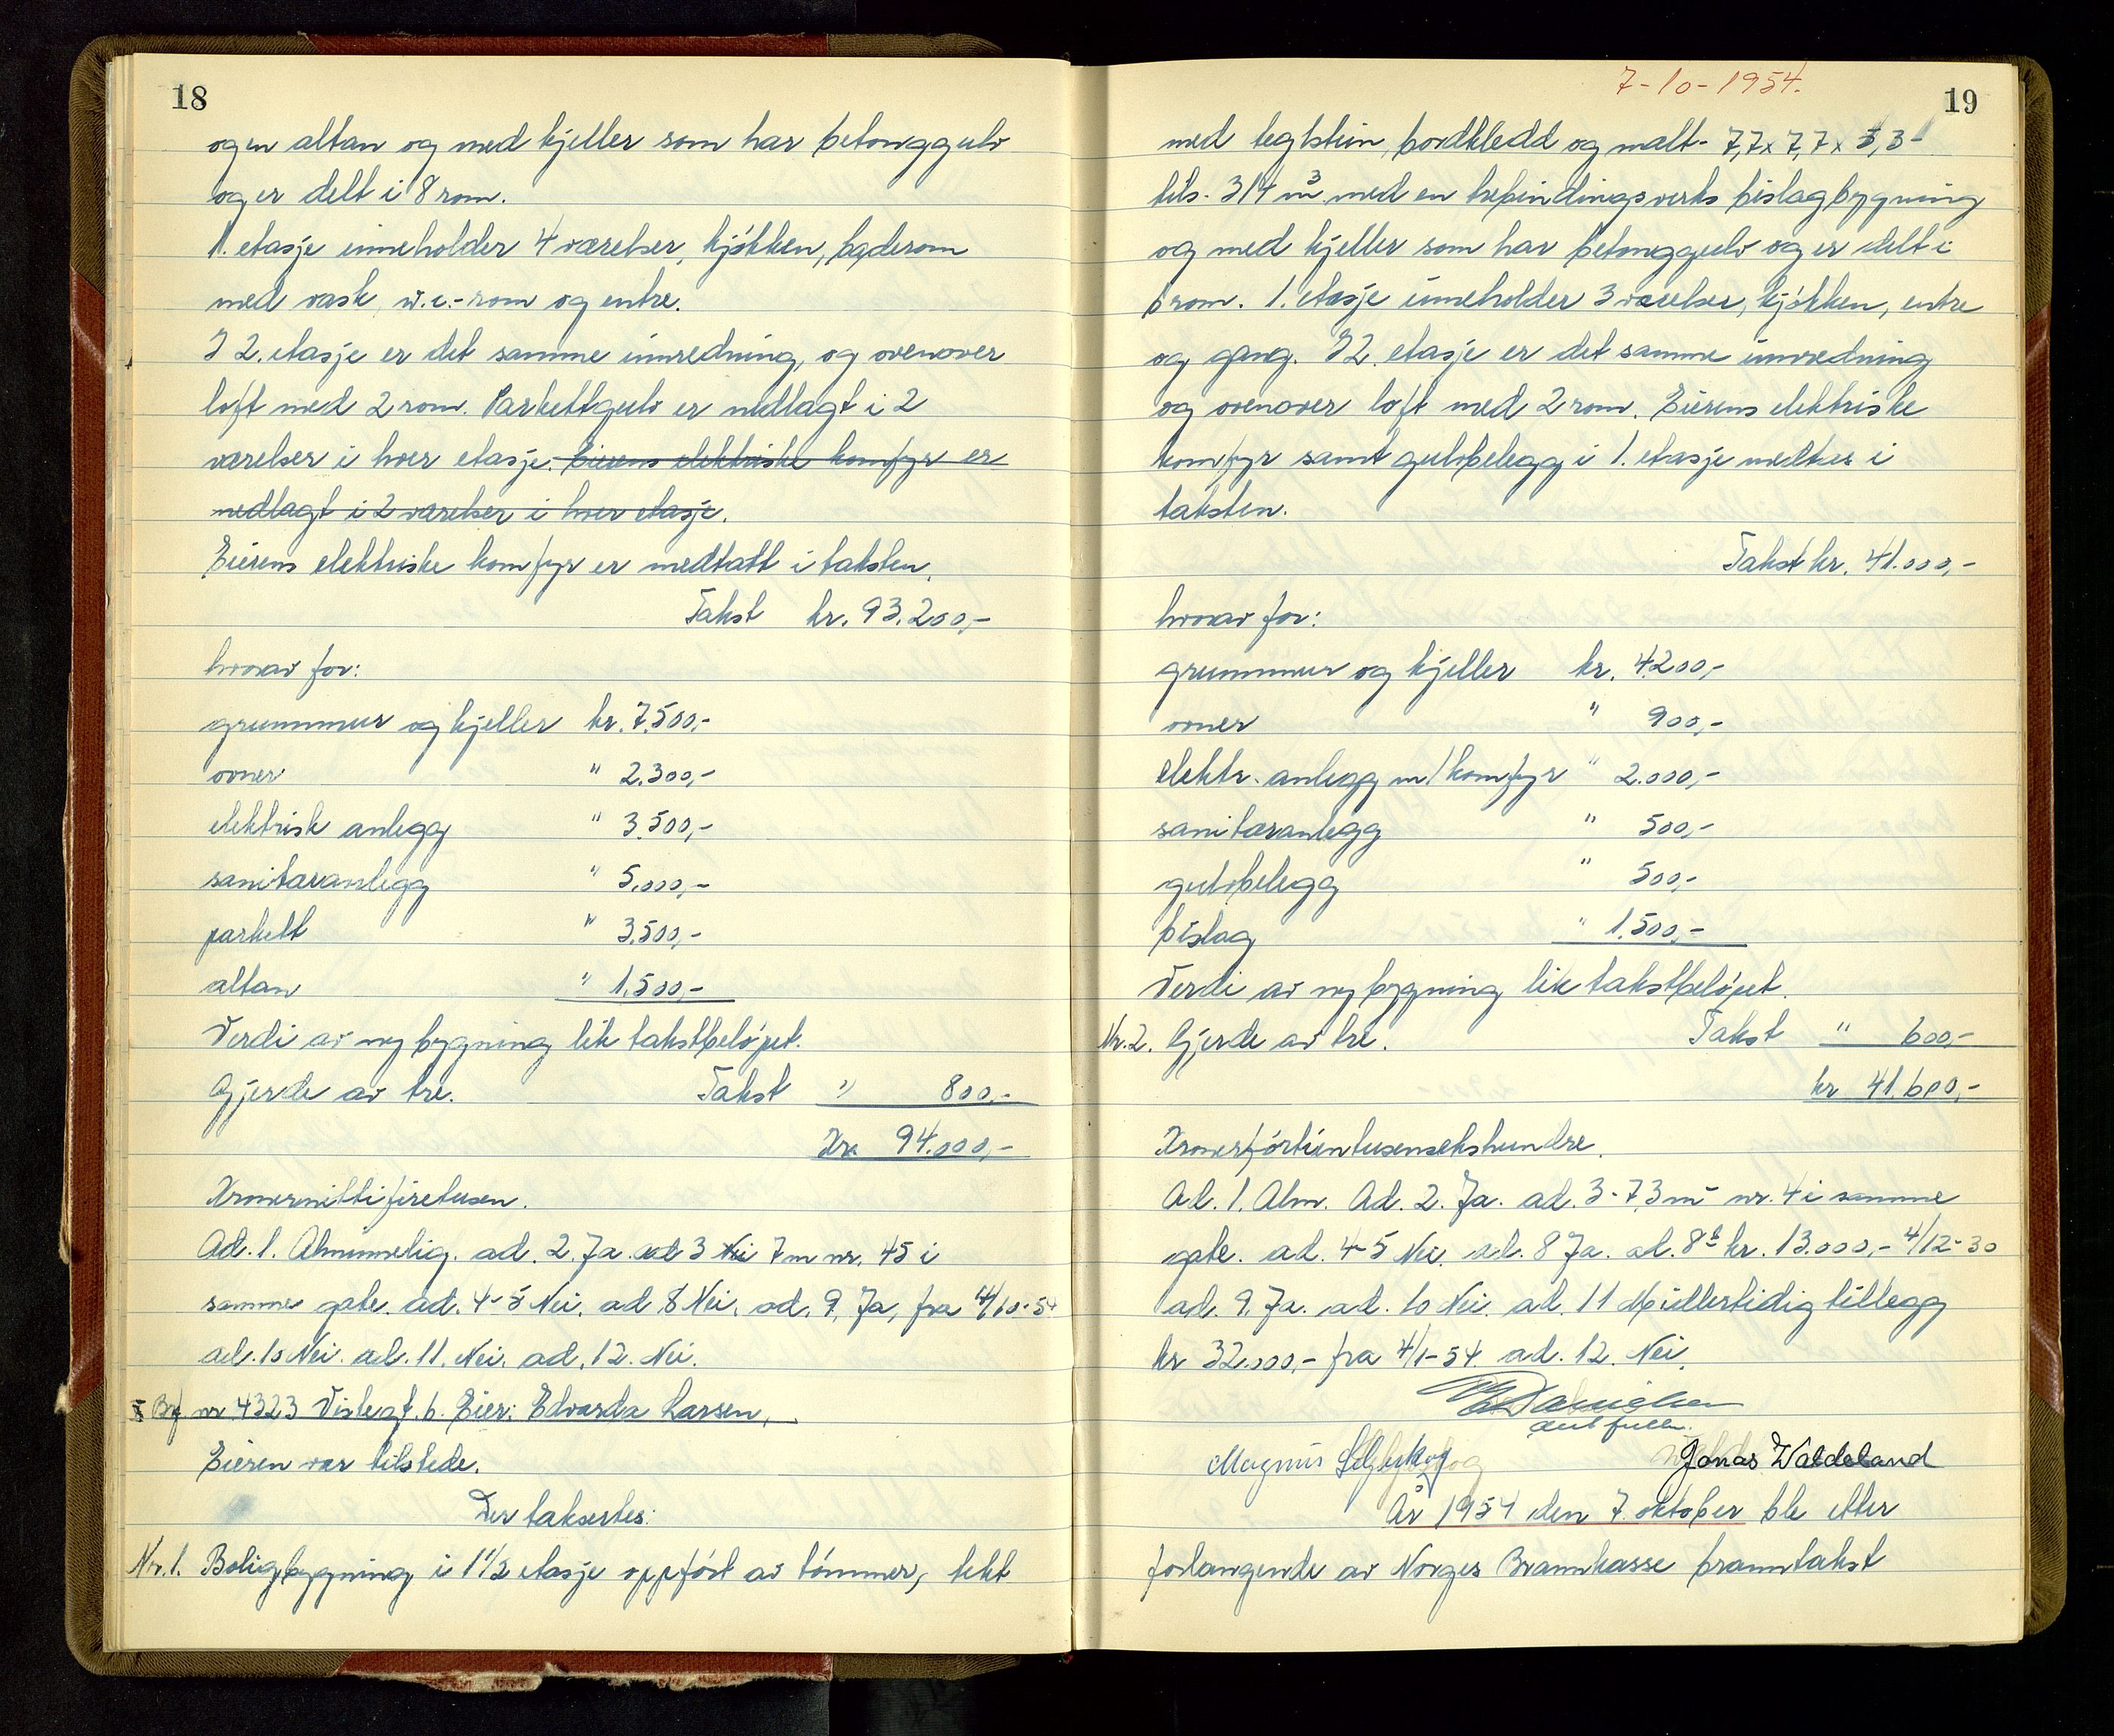 18
og en altan og med kjeller som har betonggulv
og er delt i 8 rom.
1. etasje inneholder 4 værelser, kjøkken, baderom
med vask, w.c.-rom og entre.
I 2. etasje er det samme innredning, og ovenover
loft med 2 rom. Parkettgulv er nedlagt i 2
værelser i hver etasje. Eierens elektriske komfyr er
nedlagt i 2 værelser i hver etasje.
Eierens elektriske komfyr er medtatt i taksten.
Takst kr. 93.200,-
hvorav for:
grunnmur og kjeller kr. 7.500,-
ovner " 2.300,-
elektrisk anlegg " 3.500,-
sanitæranlegg " 5.000,-
parkett " 3.500,-
altan " 1.500,-
Verdi av ny bygning lik takstbeløpet.
Gjerde av tre. Takst " 800,-
Kr. 94.000,-
Kronernittifiretusen.
Ad. 1. Alminnelig. ad. 2. Ja. ad 3 Nei 7 m nr. 45 i
samme gate. ad. 4-5 Nei. ad 8 Nei. ad. 9. Ja, fra 14/10-54
ad. 10 Nei. ad. 11. Nei. ad. 12. Nei.
nr 4323 Vislegt. 6. Eier: Edvarda Larsen,
Eieren var tilstede.
Der taksertes:
Nr. 1. Boligbygning i 1 1/2 etasje oppført av tømmer, tekt
7-10-1954.
19
med teglstein, bordkledd og malt- 7,7 x 7,7 x 5,3-
tils. 314 m3 med en trebindingsverks bislagbygning
og med kjeller som har betonggulv og er delt i
6 rom. 1. etasje inneholder 3 værelser, kjøkken, entre
og gang. I 2. etasje er det samme innredning
og ovenover loft med 2 rom. Eierens elektriske
komfyr samt gulvbelegg i 1. etasje medtas i
taksten.
Takst kr. 41.000,-
hvorav for:
grunnmur og kjeller kr. 4.200,-
ovner " 900,-
elektr. anlegg m/komfyr " 2.000,-
sanitæranlegg " 500,-
gulvbelegg " 500,-
bislag " 1.500,-
Verdi av ny bygning lik takstbeløpet.
Nr. 2. Gjerde av tre. Takst " 600,-
kr 41.600,-
Kronerførtientusensekshundre.
Ad. 1. Alm. Ad. 2. Ja. ad. 3- 7,3 m nr. 4 i samme
gate. ad. 4-5 Nei. ad. 8 Ja. ad. 8b kr. 13.000,- 4/12-30
ad. 9. Ja. ad. 10 Nei. ad. 11 Midlertidig tillegg
kr 32.000,- fra 4/1-54 ad. 12. Nei.
Magnus Jonas Waldeland
År 1954 den 7. oktober ble etter
forlangende av Norges Brannkasse branntakst